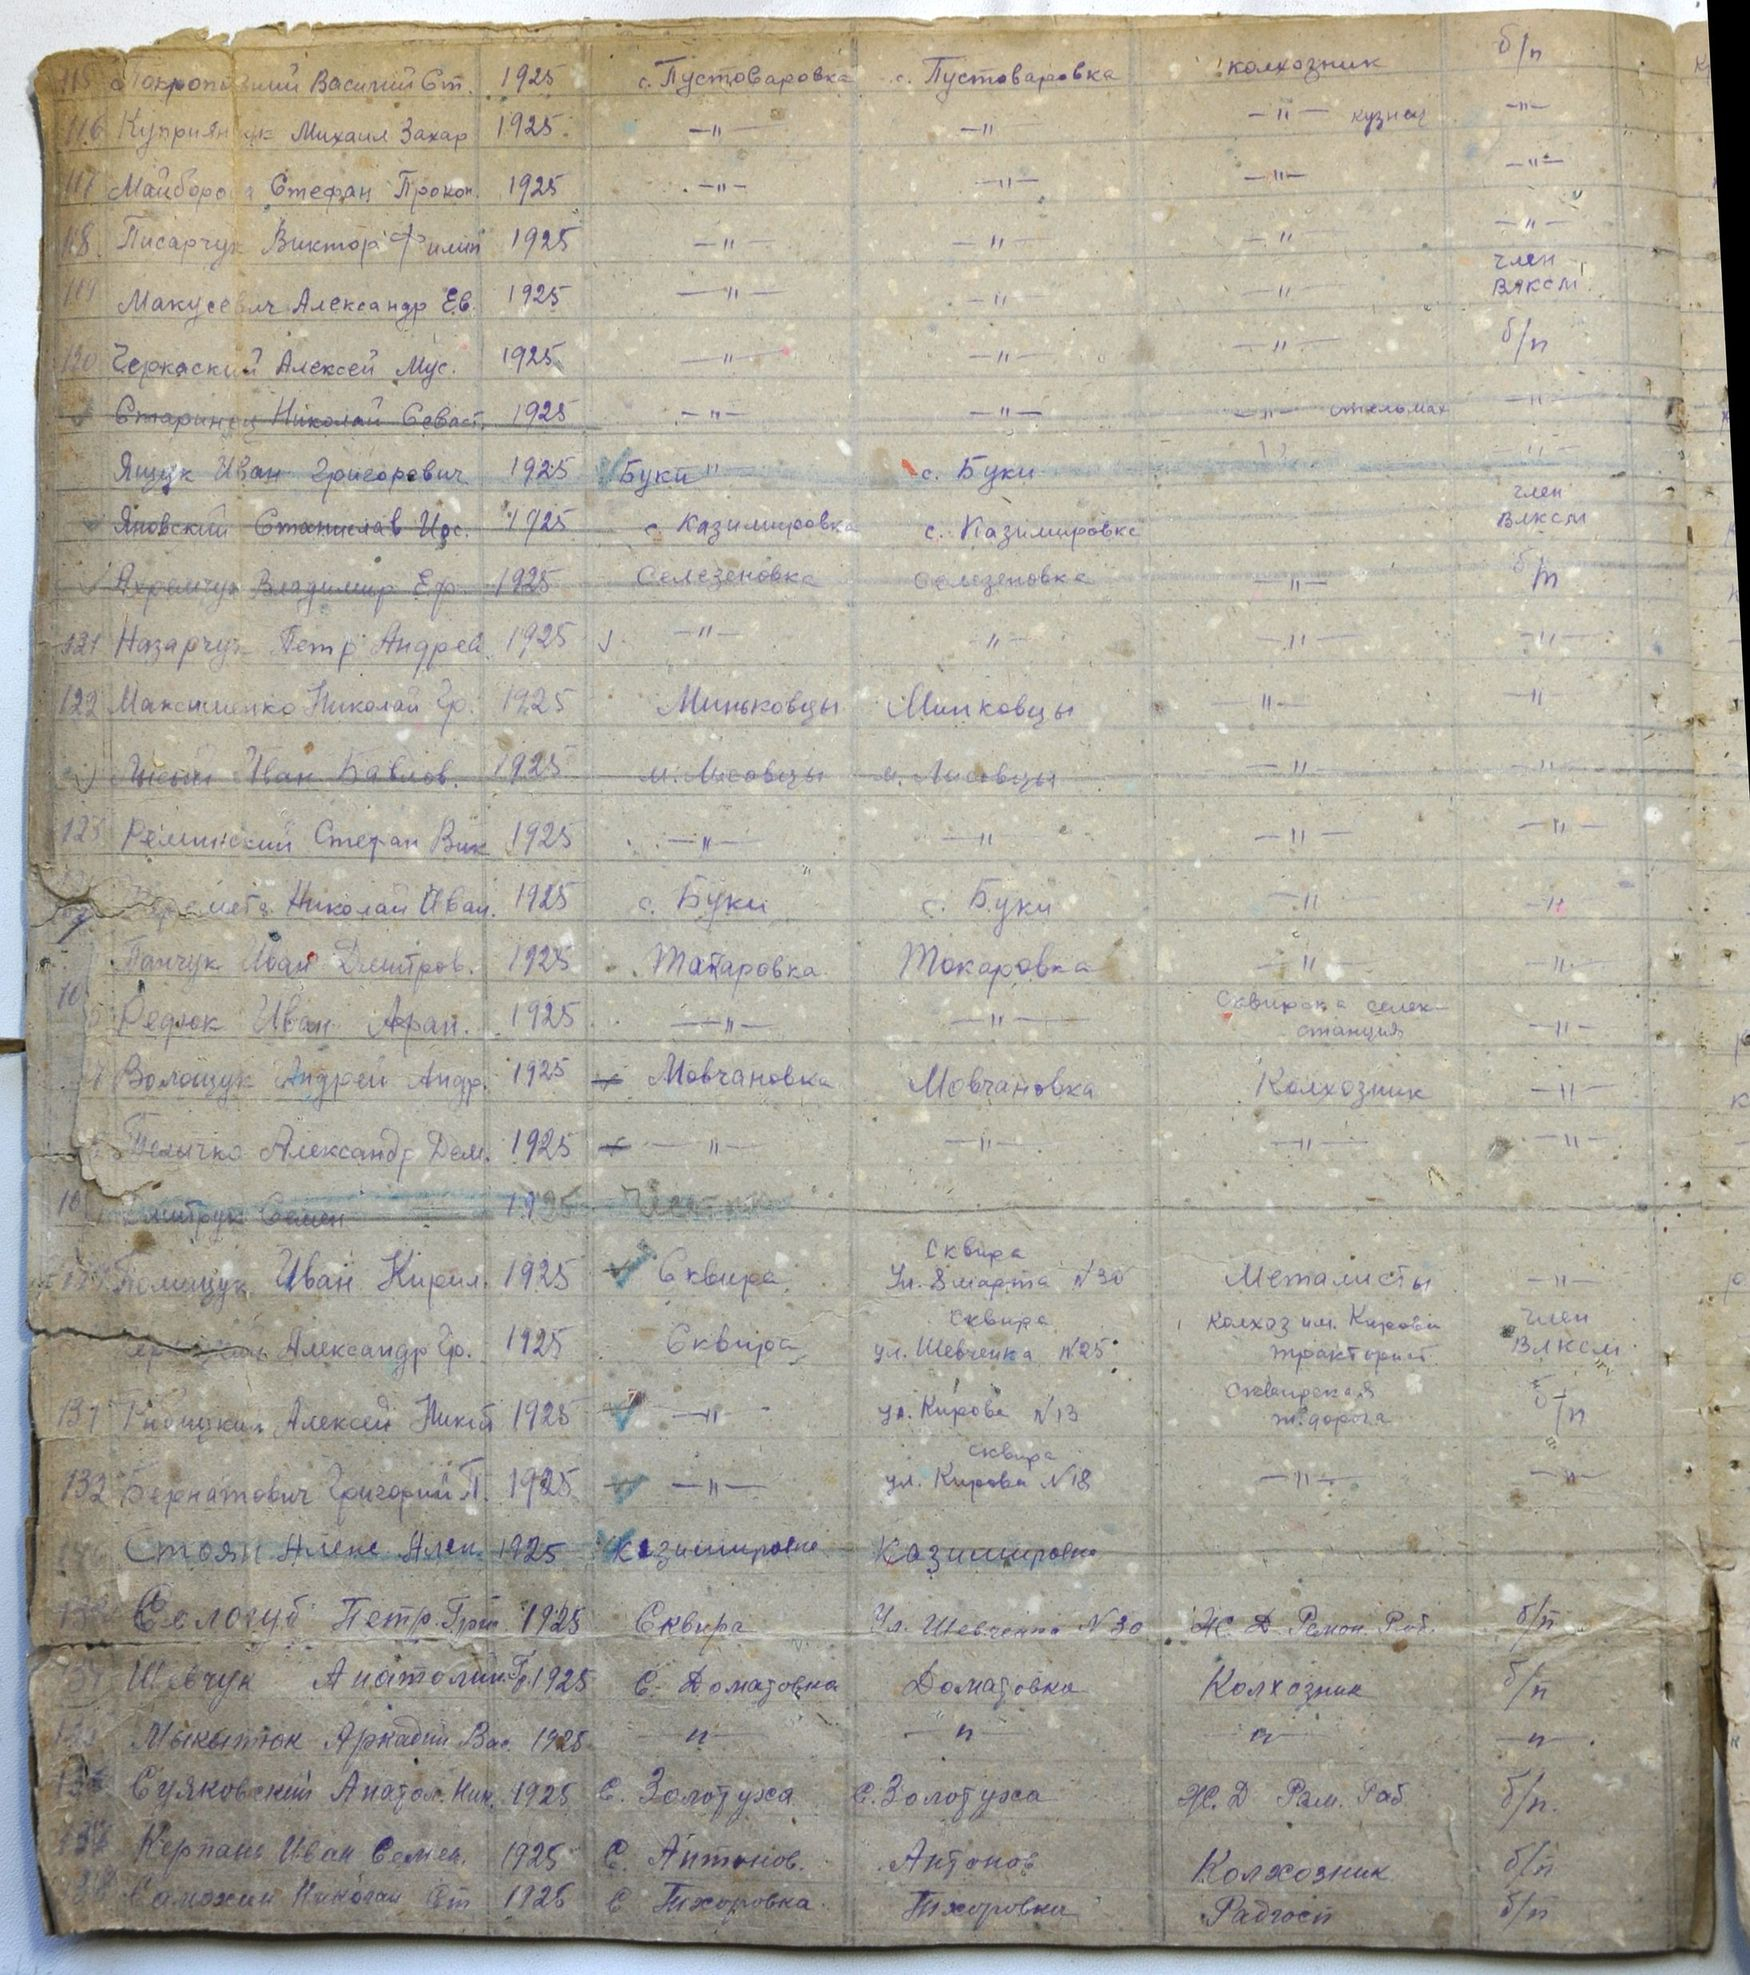 115 Покропивный Василий Ст. 1925 с. Пустоваровка с. Пустоваровка колхозник б/п
116 Куприянчук Михаил Захар 1925 —"— —"— —"— кузнец —"—
117 Майборода Стефан Прокоп. 1925 —"— —"— —"— —"—
118 Писарчук Виктор Филип 1925 —"— —"— —"— —"—
119 Макусевич Александр Ев. 1925 —"— —"— —"— член ВЛКСМ
120 Черкаский Алексей Мус. 1925 —"— —"— —"— б/п
Старинец Николай Севаст. 1925 —"— —"— —"— стельмах —"—
Ящук Иван Григоревич 1925 Буки " с. Буки —"—
Яновский Станислав Иос. 1925 с. Казимировка с. Казимировка член ВЛКСМ
Яхремчук Владимир Еф. 1925 Селезеновка Селезеновка —"— б/п
121 Назарчук Петр Андреев 1925 —"— —"— —"— —"—
122 Максименко Николай Гр. 1925 Миньковцы Минковцы —"— —"—
Лысый Иван Павлов. 1925 м. Лисовцы м. Лисовцы —"— —"—
123 Реминский Стефан Вик 1925 —"— —"— —"— —"—
Николай Иван. 1925 с. Буки с. Буки —"— —"—
Панчук Иван Дмитров. 1925 Татаровка Токаровка —"— —"—
Редюк Иван Афан. 1925 —"— —"— Сквирска селек- станция —"—
Волощук Андрей Андр. 1925 Мовчановка Мовчановка Колхозник —"—
Александр Дем. 1925 —"— —"— —"— —"—
Дмитрук Семен 1925
Полищук Иван Кирил. 1925 Сквира Сквира Ул. 8 марта №30 Металисты —"—
Александр Гр. 1925 Сквира Сквира ул. Шевченка №25 Колхоз им. Кирова тракторист член ВЛКСМ
131 Алексей Никит 1925 —"— ул. Кирова №13 Сквирская ж. дорога б/п
132 Бернатович Григорий П. 1925 —"— Сквира ул. Кирова №18 —"— —"—
Стоян Алекс Алек. 1925 Казимировка Казимировка
Сологуб Петр. Григ. 1925 Сквира Ул. Шевченко №30 Ж. Д. Ремон. Раб. б/п
Шевчук Анатолий Гр. 1925 С. Доматовка Доматовка Колхозник б/п
Мыкытюк Аркадий Вас. 1925 —"— —"— —"— —"—
136 Суяковский Анатол. Ник. 1925 С. Золотуха С. Золотуха Ж. Д Рем. Раб б/п.
137 Керпань Иван Семен. 1925 С. Антонов. Антонов Колхозник б/п
138 Самохин Николай Ст 1925 С Тхоровка Тхоровка Радгосп б/п